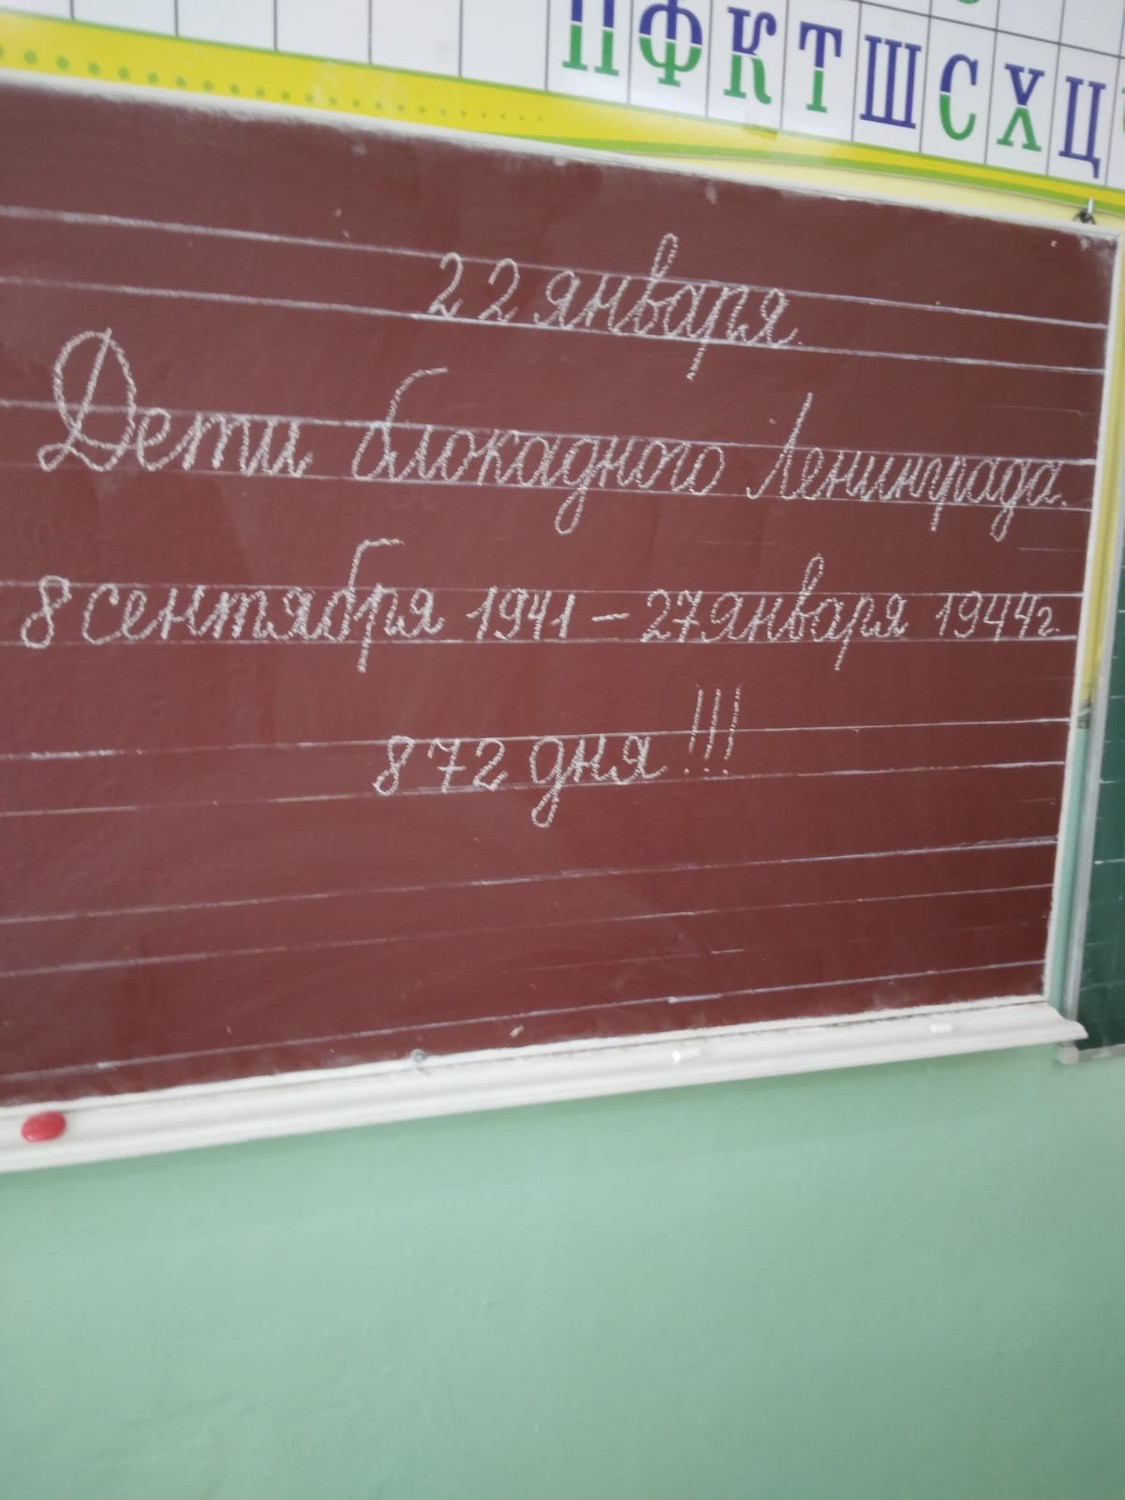 П Ф К Т Ш С Х Ц
22 января.
Дети блокадного Ленинграда.
8 сентября 1941 – 27 января 1944г.
872 дня!!!